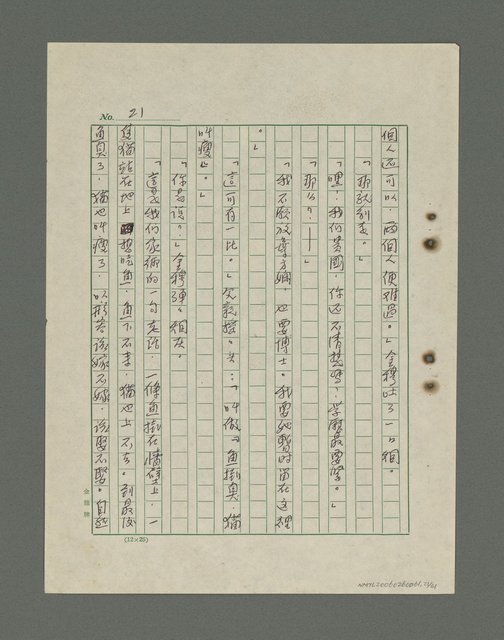 No. 21
個人還可以，兩個人便難過。」金釋吐了一口烟。
「那就別去。」
「嘿，我們美國，你還不清楚嗎，學歷最要緊。」
「那么？——」
「我不願放棄方嫻，也要博士。我要她暫時留在這裡
。」
「這可有一比。」吳敦撐口尖：「叫做『魚掛臭，貓
叫瘦』。」
「你是說？」金釋彈彈烟灰。
「這是我們家鄉的一句老話，一條魚掛在牆壁上，一
隻貓站在地上想吃魚，魚下不來，貓也上不去，到最後
魚臭了，貓也叫瘦了，以形容該嫁不嫁，該娶不娶。自然
(12×25)